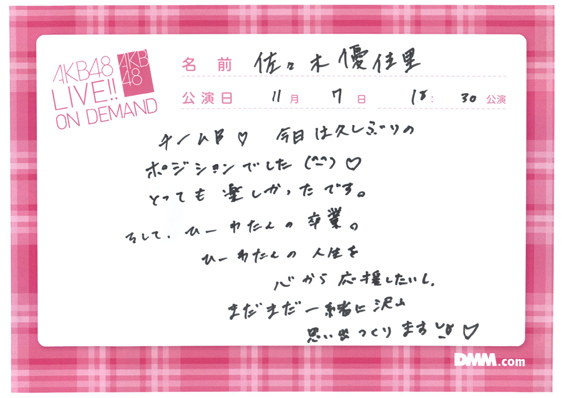 AKB48
LIVE!!
ON DEMAND
AKB
48
名前 佐々木優佳里
公演日 11月 7日 18:30公演
チームB♡ 今日は久しぶりの
ポジションでした(^^)♡
とっても楽しかったです。
そして、ひーわたんの卒業。
ひーわたんの人生を
心から応援したいし、
まだまだ一緒に沢山
思い出つくります♡
DMM.com